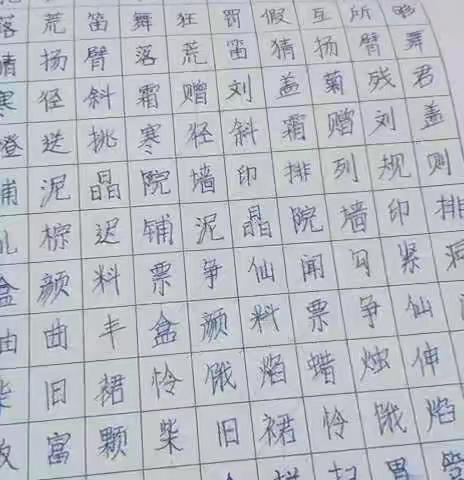 落荒笛舞狂罚假互所够
猜扬臂落荒笛猜扬臂舞
寒径斜霜赠刘盖菊残君
橙送挑寒径斜霜赠刘盖
铺泥晶院墙印排列规则
乱棕迟铺泥晶院墙印排
盒颜料票争仙闻勾紧洞
油曲丰盒颜料票争仙
柴旧裙怜饿焰蜡烛伸
富颗柴旧裙怜饿焰